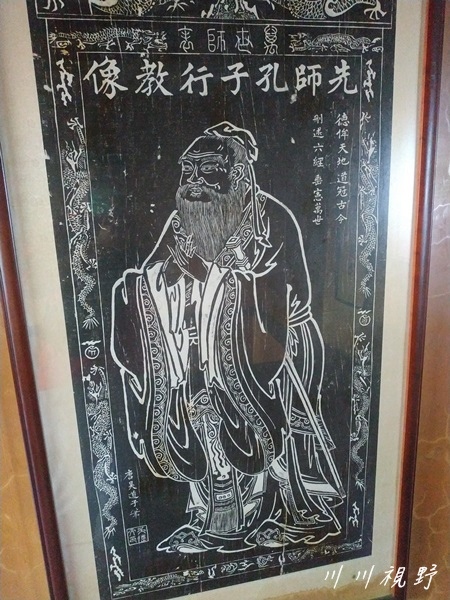 萬世師表
先師孔子行教像
德侔天地道冠古今
刪述六經垂憲萬世
唐吳道子筆
川川視野